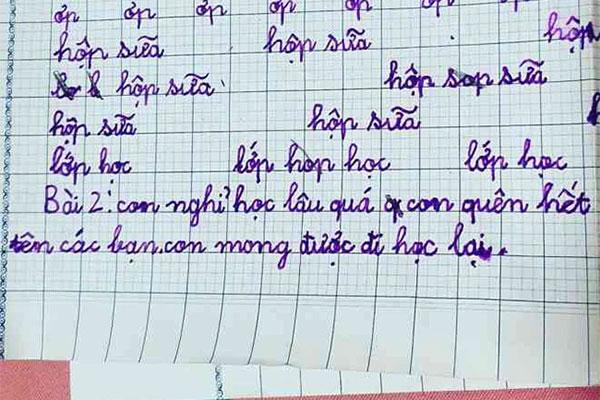 ơp ơp ơp ơp ơp ơp ơp
hộp sữa hộp sữa hộp
hộp sữa hộp sop sữa
hộp sữa hộp sữa
lớp học lớp họp học lớp học
Bài 2: con nghỉ học lâu quá con quên hết
tên các bạn. con mong được đi học lại.